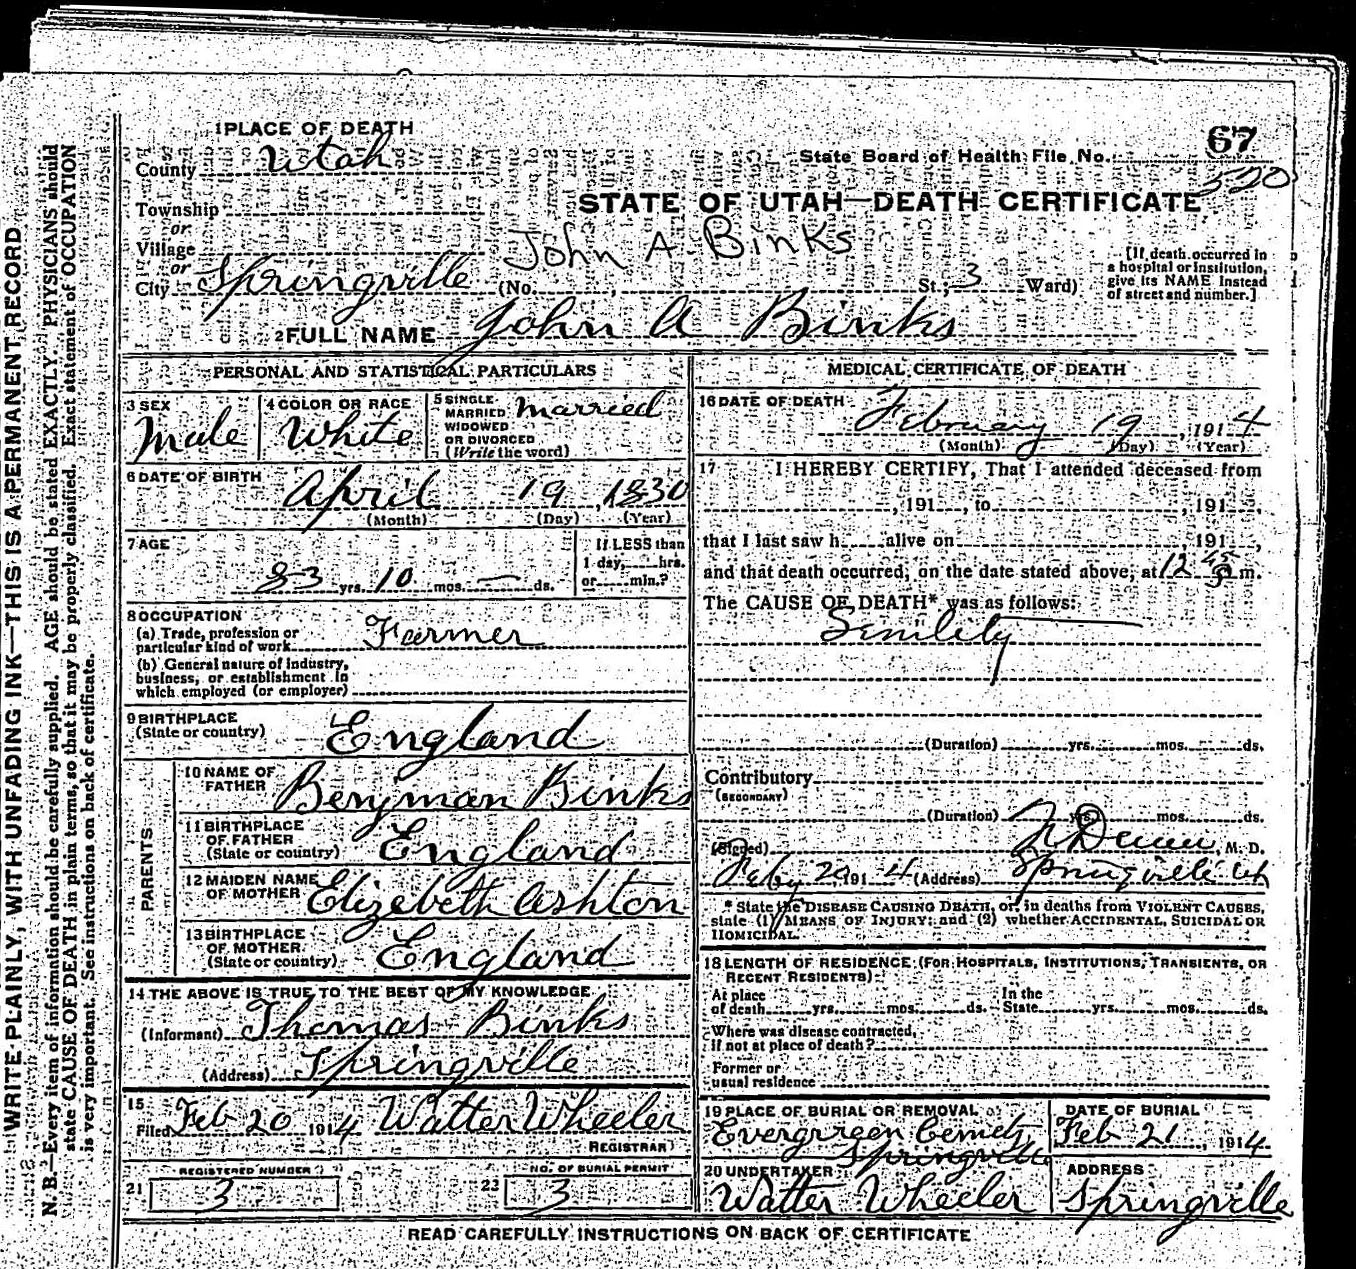 67
520
1 PLACE OF DEATH
County Utah
State Board of Health File No.
Township
or
Village
or
City Springville
STATE OF UTAH—DEATH CERTIFICATE
John A. Binks
(No. , St.; 3 Ward)
[If death occurred in a hospital or institution, give its NAME instead of street and number.]
2 FULL NAME John A Binks
PERSONAL AND STATISTICAL PARTICULARS
3 SEX
Male
4 COLOR OR RACE
White
5 SINGLE
MARRIED
WIDOWED
OR DIVORCED
(Write the word)
Married
6 DATE OF BIRTH
April 19, 1830
(Month) (Day) (Year)
7 AGE
83 yrs. 10 mos. — ds.
If LESS than
1 day, hrs.
or min.?
8 OCCUPATION
(a) Trade, profession or
particular kind of work Farmer
(b) General nature of industry,
business, or establishment in
which employed (or employer)
9 BIRTHPLACE
(State or country) England
PARENTS
10 NAME OF
FATHER Benjman Binks
11 BIRTHPLACE
OF FATHER
(State or country) England
12 MAIDEN NAME
OF MOTHER Elizebeth Ashton
13 BIRTHPLACE
OF MOTHER
(State or country) England
14 THE ABOVE IS TRUE TO THE BEST OF MY KNOWLEDGE
(Informant) Thomas Binks
(Address) Springville
15
Filed Feb 20 1914 Walter Wheeler
REGISTRAR
REGISTERED NUMBER
21 3
NO. OF BURIAL PERMIT
23 3
MEDICAL CERTIFICATE OF DEATH
16 DATE OF DEATH
February 19, 1914
(Month) (Day) (Year)
17 I HEREBY CERTIFY, That I attended deceased from
, 191 , to , 191 ,
that I last saw h alive on 191 ,
and that death occurred, on the date stated above, at 12 45 m.
The CAUSE OF DEATH* was as follows:
Senility
(Duration) yrs. mos. ds.
Contributory
(SECONDARY)
(Duration) yrs. mos. ds.
(Signed) M. D.
Feby 20 1914 (Address) Springville Ut
* State the DISEASE CAUSING DEATH, or, in deaths from VIOLENT CAUSES,
state (1) MEANS OF INJURY; and (2) whether ACCIDENTAL, SUICIDAL OR
HOMICIDAL.
18 LENGTH OF RESIDENCE (FOR HOSPITALS, INSTITUTIONS, TRANSIENTS, OR
RECENT RESIDENTS)
At place
of death yrs. mos. ds.
In the
State yrs. mos. ds.
Where was disease contracted,
if not at place of death?
Former or
usual residence
19 PLACE OF BURIAL OR REMOVAL
Evergreen Cemety
Springville
DATE OF BURIAL
Feb 21, 1914
20 UNDERTAKER
Walter Wheeler
ADDRESS
Springville
READ CAREFULLY INSTRUCTIONS ON BACK OF CERTIFICATE
WRITE PLAINLY, WITH UNFADING INK—THIS IS A PERMANENT RECORD
N. B.—Every item of information should be carefully supplied. AGE should be stated EXACTLY. PHYSICIANS should
state CAUSE OF DEATH in plain terms, so that it may be properly classified. Exact statement of OCCUPATION
is very important. See instructions on back of certificate.